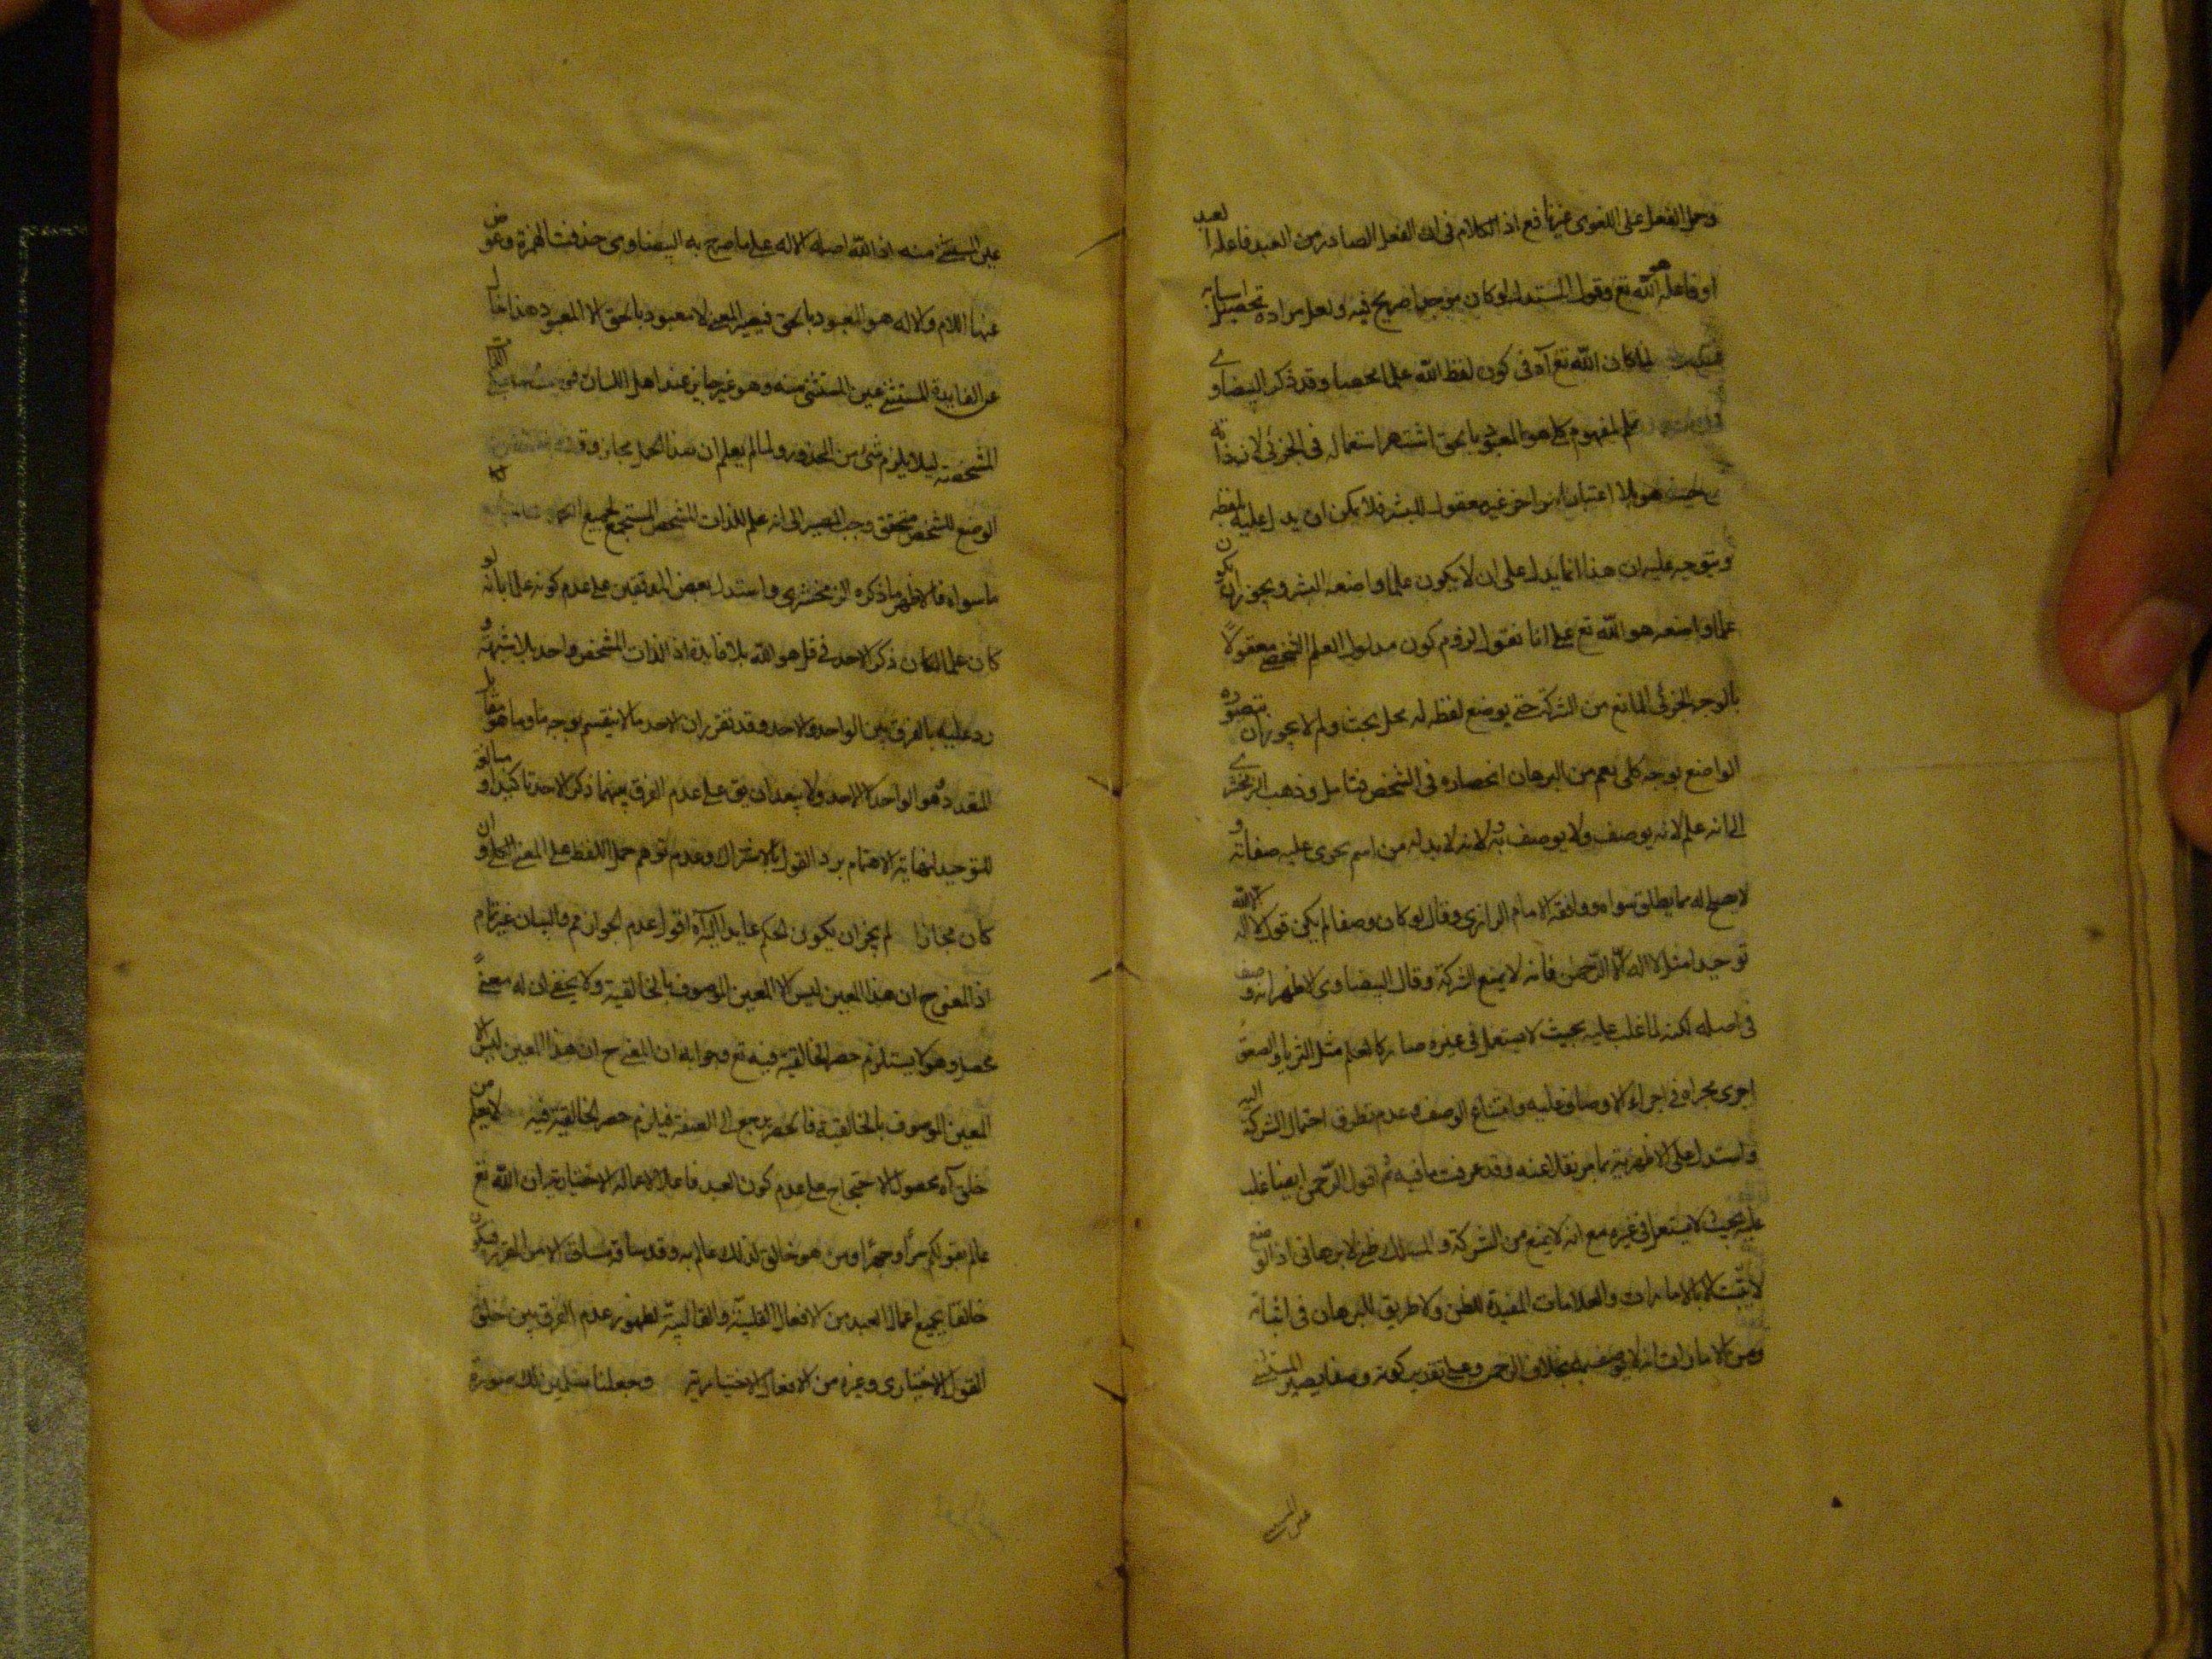 وحمل الفعل على اللغوى غير نافع اذ الكلام فى ان الفعل الصادر من العبد فاعله العبد
او فاعله هو الله تع وقول المستدل لوكان موجدا صريح فيه ولعل مراده تحصيل
لما كان الله تع آه فى كون لفظ الله علما محصا وقد ذكر البيضاوى
علم لمفهوم كلى هو المعبود بالحق اشتهر استعماله فى الجزئى لان ذاته
حيث هو بلا اعتبار امر اخر غير معقول للبشر فلا يمكن ان يدل عليه بلفظ
ويتوجه عليه ان هذا انما يدل على ان لا يكون علما واضعه البشر ويجوز ان يكون
علما واضعه هو الله تع على انا نقول لزوم كون مدلول العلم الشخصى معقولاً
بالوجه الجزئى المانع من الشركة حتى يوضع لفظه له محل بحث ولم لا يجوز ان يتصوره
الواضع بوجه كلى يعم من البرهان انحصاره فى الشخص فتامل وذهب الزمخشرى
الى انه علم لانه يوصف ولا يوصف به ولانه لا بد له من اسم يجرى عليه صفاته و
لا يصلح له مما يطلق سواه ووافقه الامام الرازى وقال لو كان وصفا لم يكن قول لا اله الا الله
توحيدا مثل لا اله الا الرحمن فانه لا يمنع الشركة وقال البيضاوى الاظهر انه وصف
فى اصله لكنه لما غلب عليه بحيث لا يستعمل فى غيره صار كالعلم مثل الثريا والصعق
اجرى مجراه فى اجراء الاوصاف عليه وامتناع الوصف به وعدم تطرق احتمال الشركة اليه
واستدل على الاظهرية بما مر نقلا عنه وقد عرفت ما فيه ثم اقول الرحمن ايضا غلب
عليه بحيث لا يستعمل فى غيره مع انه لا يمنع من الشركة والمسلك ظنى لا برهانى اذ الوضع
لا يثبت الا بالامارات والعلامات المفيدة للظن ولا طريق للبرهان فى اثباته
ومن الامارات انه لا يوصف به بخلاف الرحمن وعلى تقدير كونه وصفا يصير المستثنى
عين المستثنى منه اذ الله اصله الاله على ما صرح به البيضاوى حذفت الهمزة وعوض
عنها اللام والاله هو المعبود بالحق فيصير المعنى لا معبود بالحق الا المعبود هذا خال
عن الفايدة المستثنى عين المستثنى منه وهو غير جايز عند اهل اللسان
المشخصة ليلا يلزم شئ من المحذور ولما لم يعلم ان هذا الحمل مجاز وقد
الوضع للشخص متحقق وجب المصير الى انه علم للذات المشخص المستجمع لجميع
ما سواه فالاظهر ما ذكره الزمخشرى واستدل بعض المدققين على عدم كونه علما بانه لو
كان علما لكان ذكر الاحد فى قل هو الله بلا فايدة اذ الذات المشخص واحد بلا شبهة و
رد عليه بالفرق بين الواحد والاحد وقد تقرر ان الاحد ما لا ينقسم بوجه ما وما هو مقابل
المتعدد هو الواحد لا الاحد ولا يبعد ان يق على عدم الفرق بينهما ذكر الاحد تاكيدا و مبالغة
للتوحيد لنهاية الاهتمام برد القول بالاشتراك وعدم توهم حمل اللفظ على المعنى الكلى وان
كان مجازا لم يجز ان يكون الحكم عايدا اليه آه اقول عدم الجواز مم والبيان غير تام
اذ المعنى ح ان هذا المعين ليس الا المعين الموصوف بالخالقية ولا يخفى ان له معنىً
محصل وهو لا يستلزم حصر الخالقية فيه تع وجوابه ان المعنى ح ان هذا المعين ليس الا
المعين الموصوف بالخالقية فالحصر يرجع الى الصفة فيلزم حصر الخالقية فيه لا يعلم من
خلق آه محصول الاحتجاج على عدم كون العبد فاعلا لاعماله الاختيارية ان الله تع
عالم بقولكم سراً وجهراً ومن هو خالق لذلك عالم به وقد ساقه مساق الامر المقرر فيكون
خالقا لجميع اعمال العبد من الافعال القلبية والقالبية لظهور عدم الفرق بين خلق
القول الاختيارى وغيره من الافعال الاختيارية وجعلنا مسلمين لك صورة